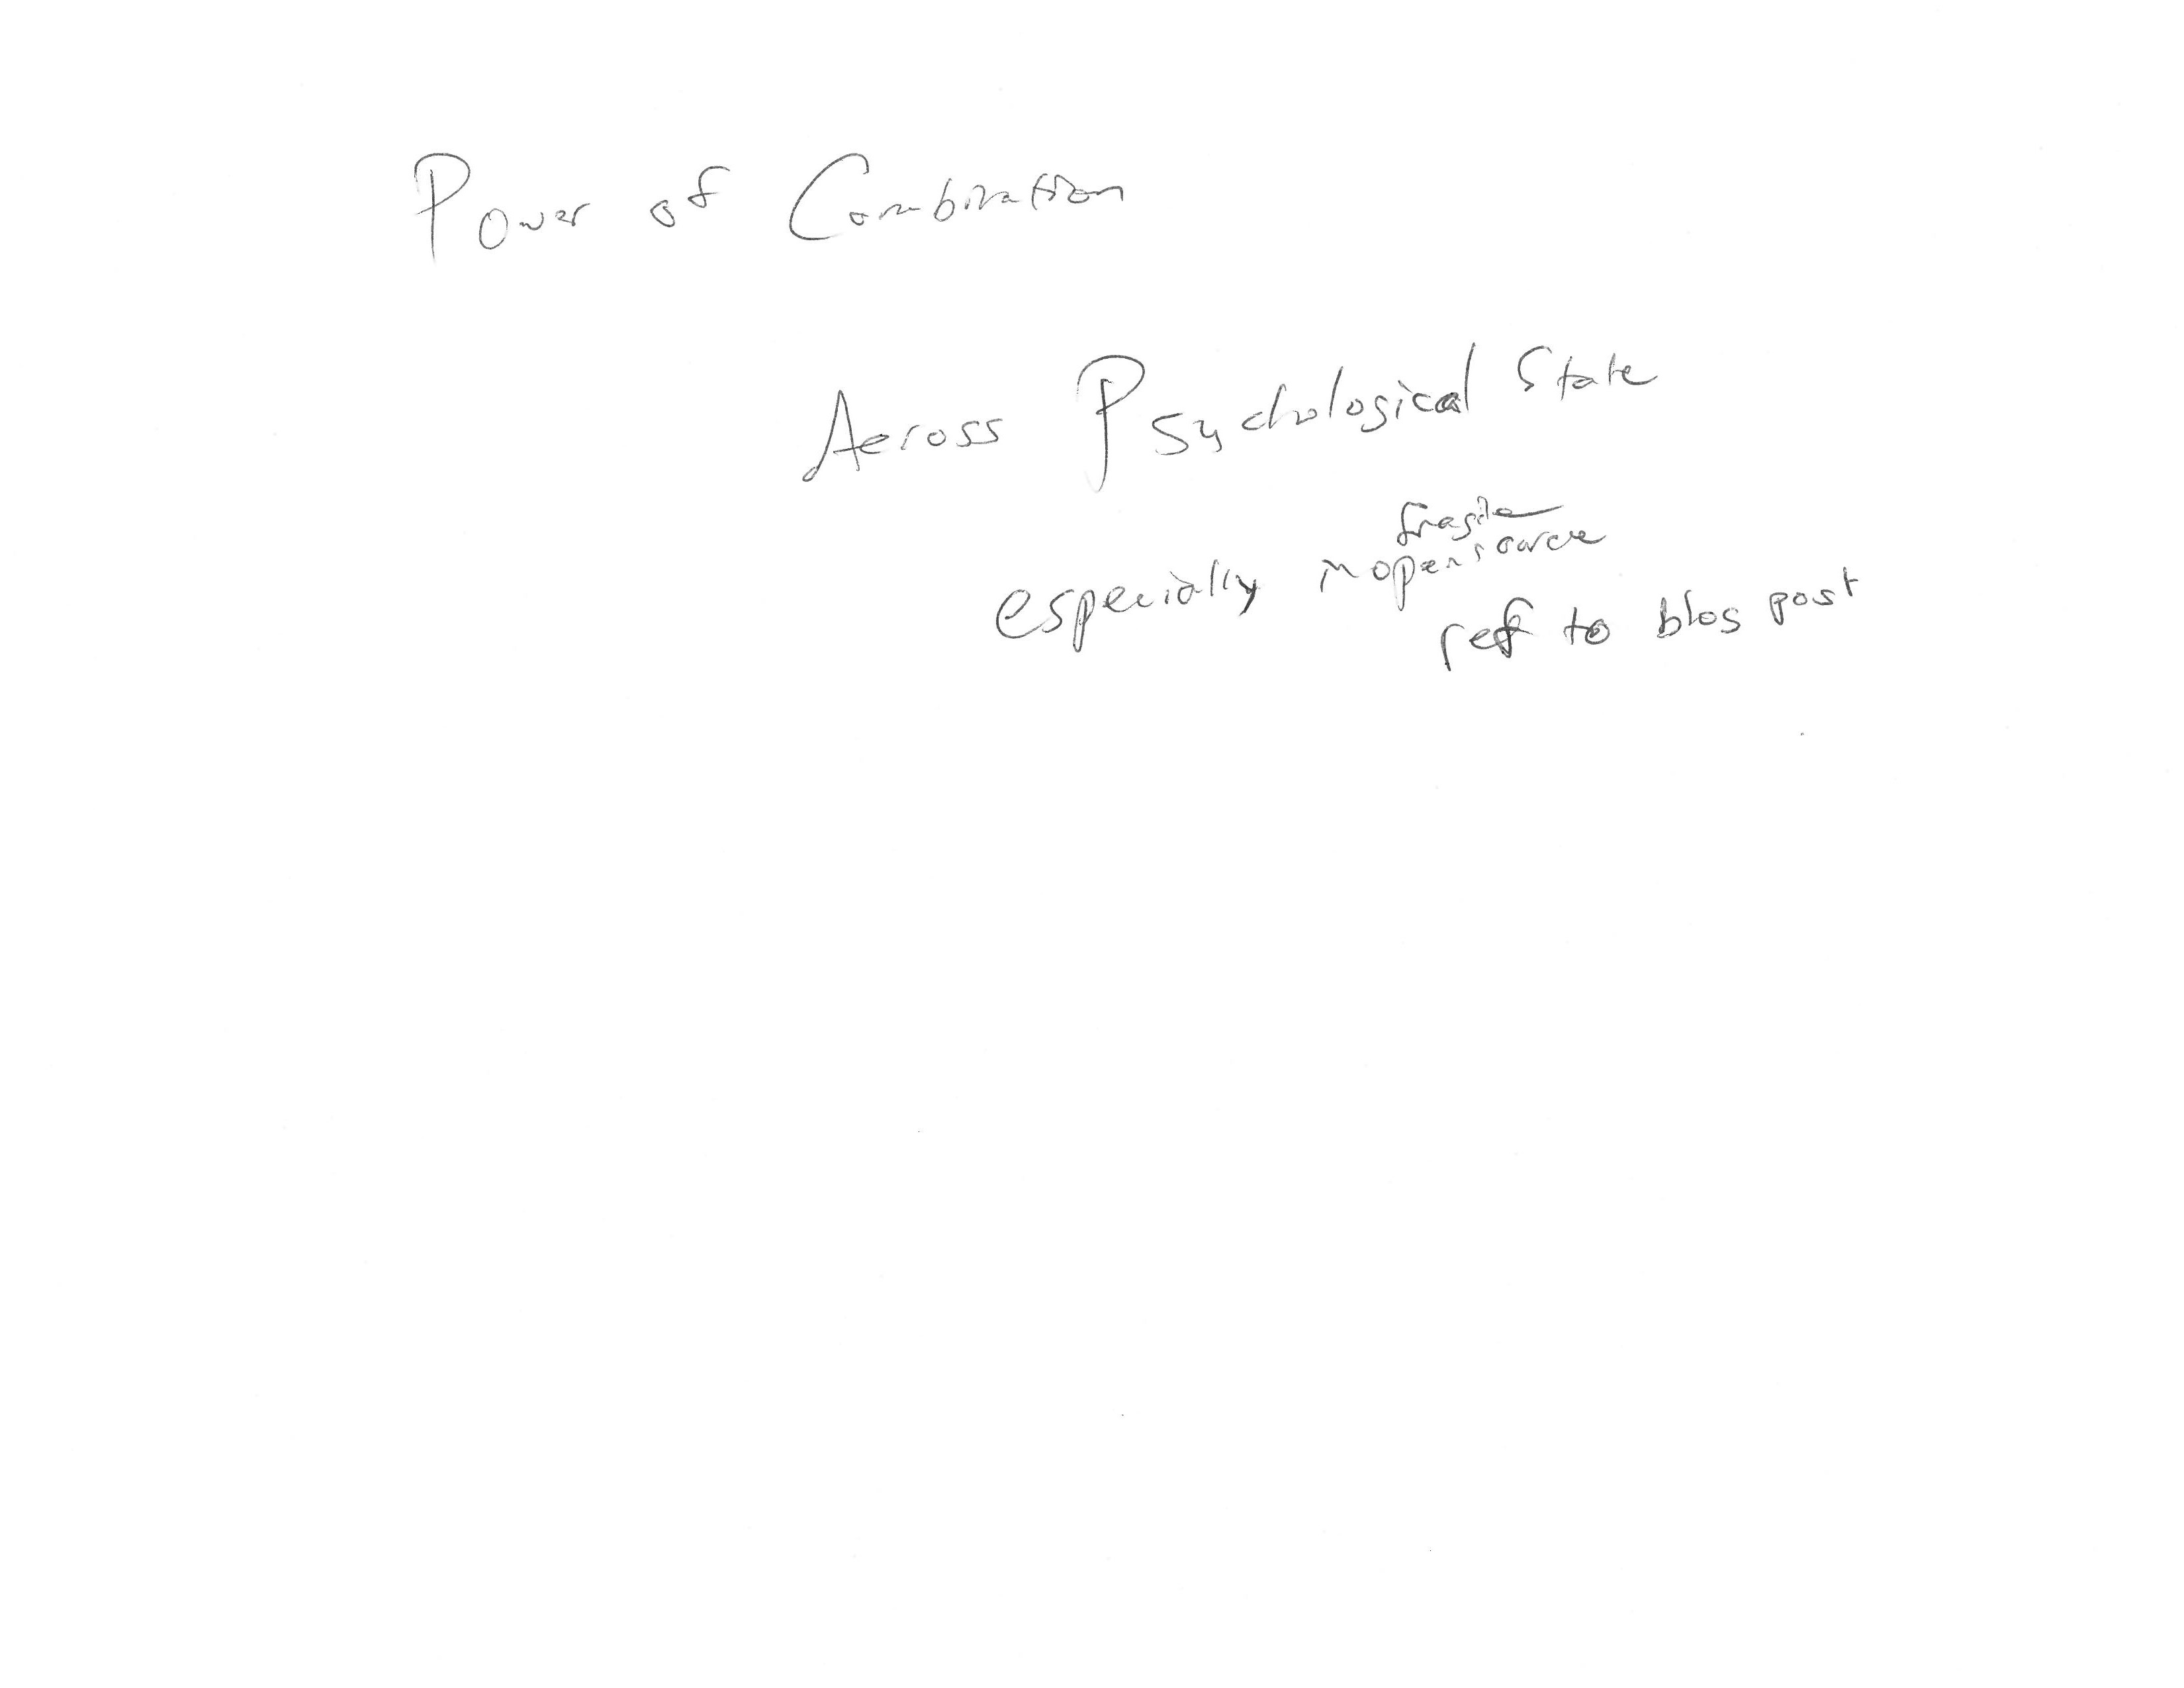 Power of Combination
Across Psychological State
fragile
especially in opensource
ref to blog post